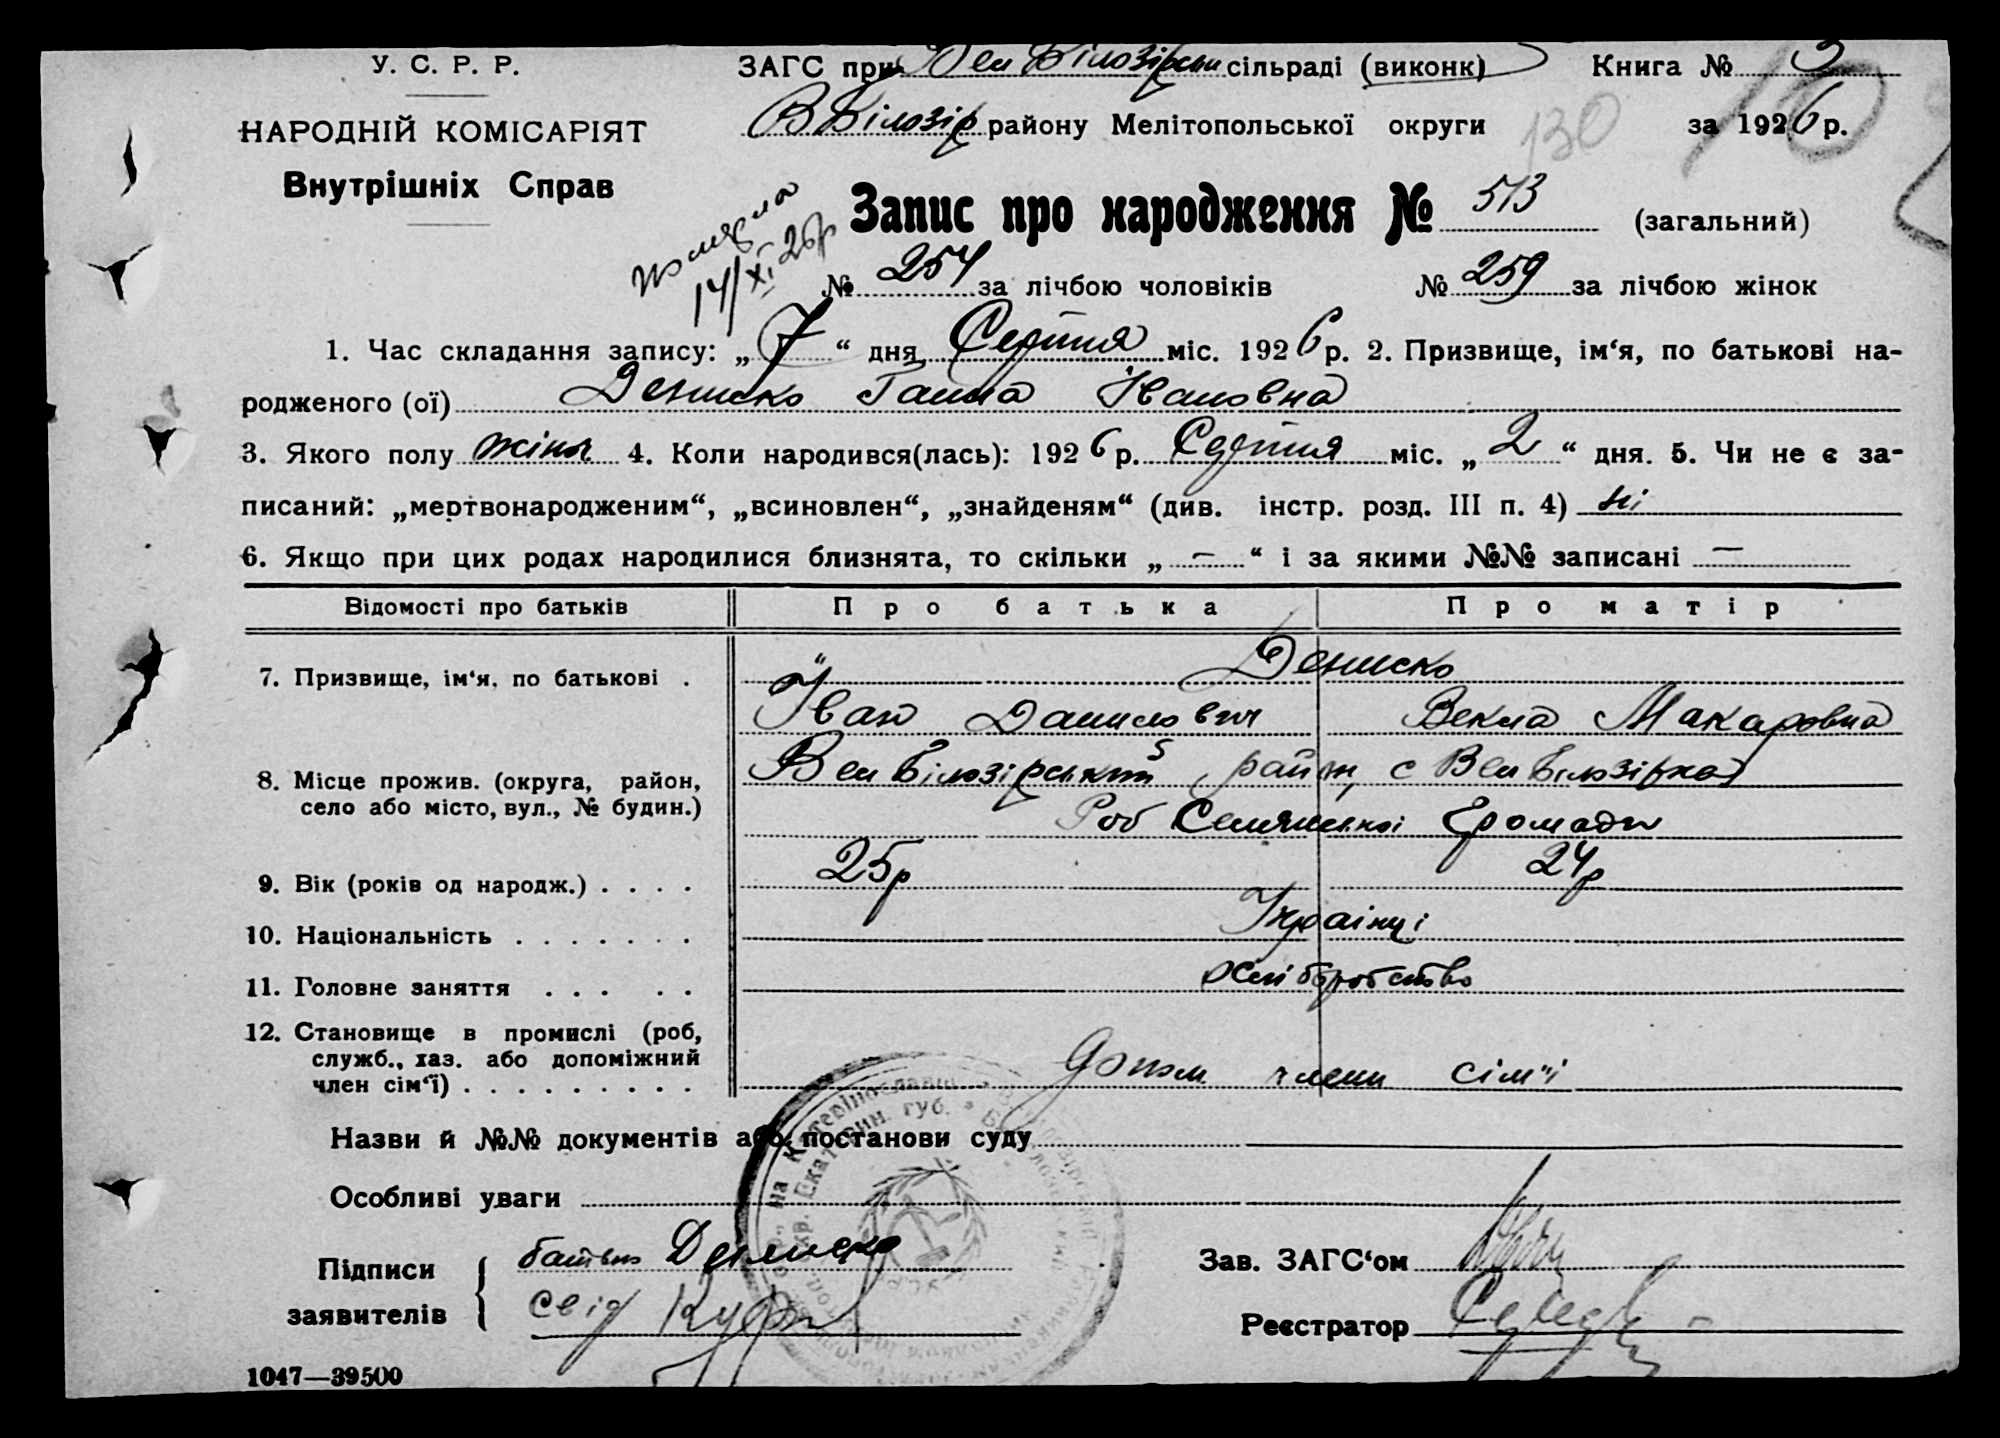 У. С. Р. Р.
НАРОДНІЙ КОМІСАРІЯТ
Внутрішніх Справ
ЗАГС при Вел Білозірськ сільраді (виконк)
Книга № 3
В Білозір району Мелітопольської округи
за 1926 р.
130
10
Запис про народження № 513 (загальний)
померла
14/XI 26р
№ 254 за лічбою чоловіків
№ 259 за лічбою жінок
1. Час складання запису: „7“ дня Серпня міс. 1926 р. 2. Призвище, ім‘я, по батькові на-
родженого (ої) Дениско Ганна Івановна
3. Якого полу жіноч 4. Коли народився(лась): 1926 р. Серпня міс. „2“ дня. 5. Чи не є за-
писаний: „мертвонародженим“, „всиновлен“, „знайденям“ (див. інстр. розд. III п. 4) ні
6. Якщо при цих родах народилися близнята, то скільки „ — “ і за якими №№ записані —
Відомості про батьків
Про батька
Про матір
7. Призвище, ім‘я, по батькові .
Дениско
Іван Данилович
Векла Макаровна
8. Місце прожив. (округа, район,
село або місто, вул., № будин.)
Вел Білозірський район с Вел Білозірка
Роб Селянської Громади
9. Вік (років од народж.) . . . .
25р
24р
10. Національність . . . . . . .
Українці
11. Головне заняття . . . . .
хліборобство
12. Становище в промислі (роб,
служб., хаз. або допоміжний
член сім‘ї) . . . . . . . . .
допом члени сім"ї
Назви й №№ документів або постанови суду
Особливі уваги
Підписи
заявителів
батько Дениско
свід
Зав. ЗАГС‘ом
Реєстратор
1047—39500